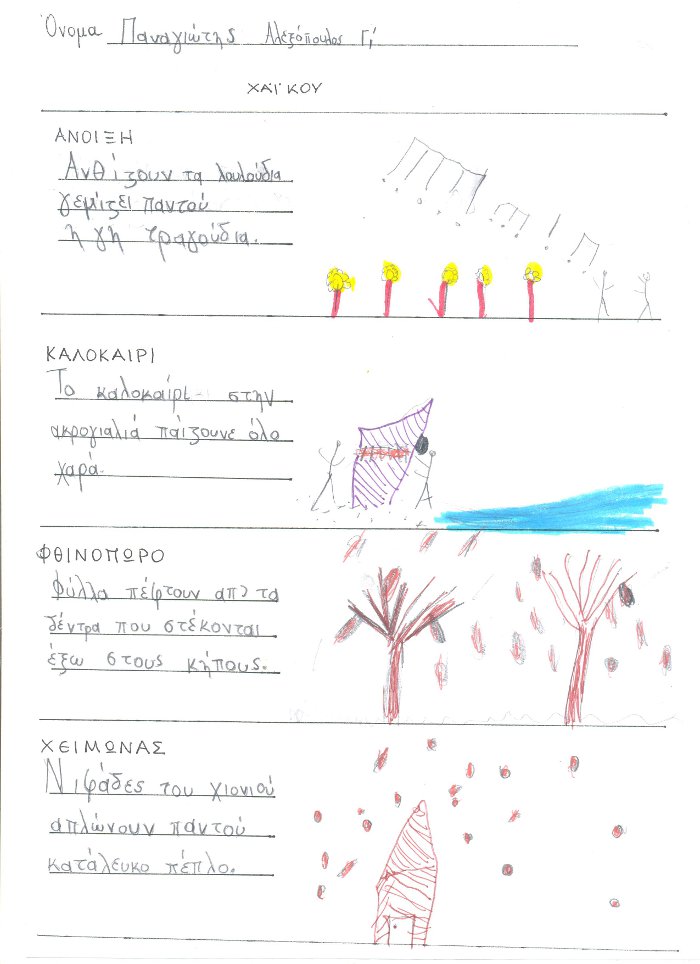 Όνομα Παναγιώτης Αλεξόπουλος Γ1
ΧΑΪΚΟΥ
ΑΝΟΙΞΗ
Ανθίζουν τα λουλούδια
γεμίζει παντού
η γη τραγούδια.
ΚΑΛΟΚΑΙΡΙ
Το καλοκαίρι στην
ακρογιαλιά παίζουνε όλο
χαρά.
ΦΘΙΝΟΠΩΡΟ
Φύλλα πέφτουν από τα
δέντρα που στέκονται
έξω στους κήπους.
ΧΕΙΜΩΝΑΣ
Νιφάδες του χιονιού
απλώνουν παντού
κατάλευκο πέπλο.